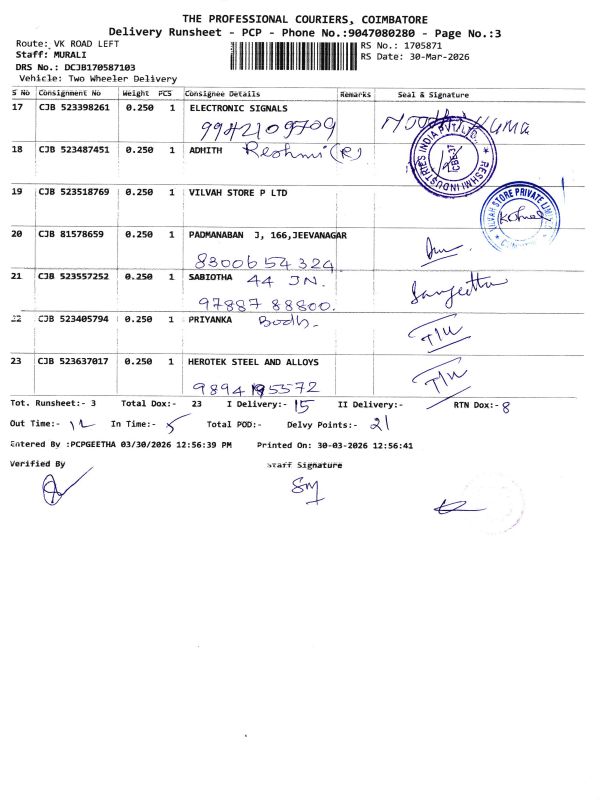 THE PROFESSIONAL COURIERS, COIMBATORE
Delivery Runsheet - PCP - Phone No.:9047080280 - Page No.:3
Route: VK ROAD LEFT
Staff: MURALI
DRS No.: DCJB170587103
Vehicle: Two Wheeler Delivery
RS No.: 1705871
RS Date: 30-Mar-2026
S No Consignment No Weight PCS Consignee Details Remarks Seal & Signature
17 CJB 523398261 0.250 1 ELECTRONIC SIGNALS
9942109709
18 CJB 523487451 0.250 1 ADHITH Reshmi (R)
RESHMI INDUSTRIES INDIA PVT. LTD.
CBE-37
19 CJB 523518769 0.250 1 VILVAH STORE P LTD
VILVAH STORE PRIVATE LIMITED
20 CJB 81578659 0.250 1 PADMANABAN J, 166,JEEVANAGAR
8300654324
21 CJB 523557252 0.250 1 SABIOTHA 44 JN. Sangeetha
97887 88800.
22 CJB 523405794 0.250 1 PRIYANKA Booth. T/W
23 CJB 523637017 0.250 1 HEROTEK STEEL AND ALLOYS T/W
9894195572
Tot. Runsheet:- 3 Total Dox:- 23 I Delivery:- 15 II Delivery:- RTN Dox:- 8
Out Time:- 12 In Time:- 5 Total POD:- Delvy Points:- 21
Entered By :PCPGEETHA 03/30/2026 12:56:39 PM Printed On: 30-03-2026 12:56:41
Verified By Staff Signature